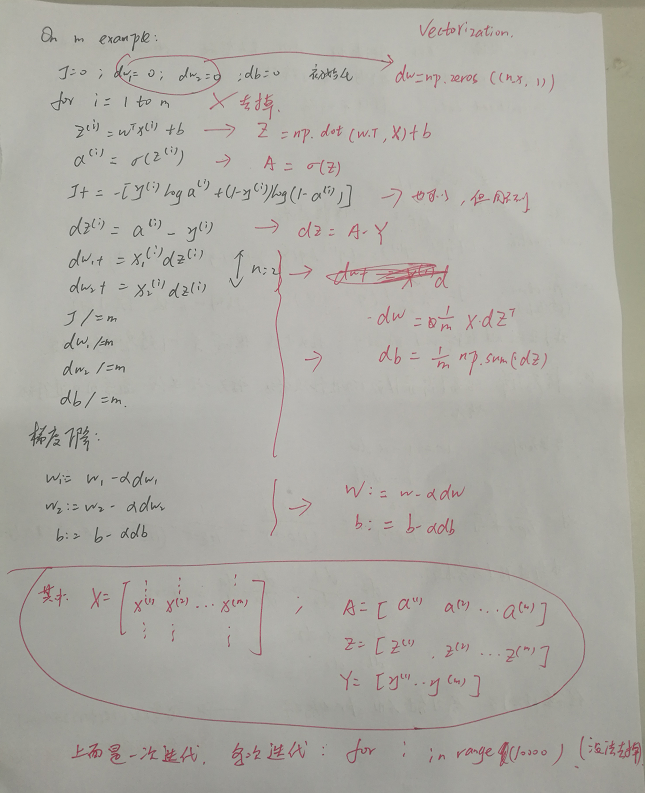 On m example:
Vectorization.
J=0 ; dw₁=0 ; dw₂=0 ; db=0 初始化
dw=np.zeros((nx, 1))
for i = 1 to m ✗去掉.
z⁽ⁱ⁾ = wᵀx⁽ⁱ⁾+b → Z = np.dot(w.T, X)+b
a⁽ⁱ⁾ = σ(z⁽ⁱ⁾) → A = σ(Z)
J+ = -[y⁽ⁱ⁾ log a⁽ⁱ⁾ + (1-y⁽ⁱ⁾) log(1-a⁽ⁱ⁾)] → 也可以, 但用不到
dz⁽ⁱ⁾ = a⁽ⁱ⁾ - y⁽ⁱ⁾ → dz = A-Y
dw₁+ = x₁⁽ⁱ⁾dz⁽ⁱ⁾
n=2 →
dw₂+ = x₂⁽ⁱ⁾dz⁽ⁱ⁾
J/=m
dw = 1/m X·dZᵀ
dw₁/=m
→ db = 1/m np.sum(dz)
dw₂/=m
db/=m.
梯度下降:
w₁:= w₁-αdw₁ → W:= w-αdw
w₂:= w₂-αdw₂
b:= b-αdb b:= b-αdb
其中 X= [x⁽¹⁾ x⁽²⁾ ... x⁽ᵐ⁾] ; A=[a⁽¹⁾ a⁽²⁾ ... a⁽ᵐ⁾]
Z=[z⁽¹⁾ . z⁽²⁾ ... z⁽ᵐ⁾]
Y=[y⁽¹⁾ ... y⁽ᵐ⁾]
上面是一次迭代, 多次迭代: for i in range(10000) (没法去掉)